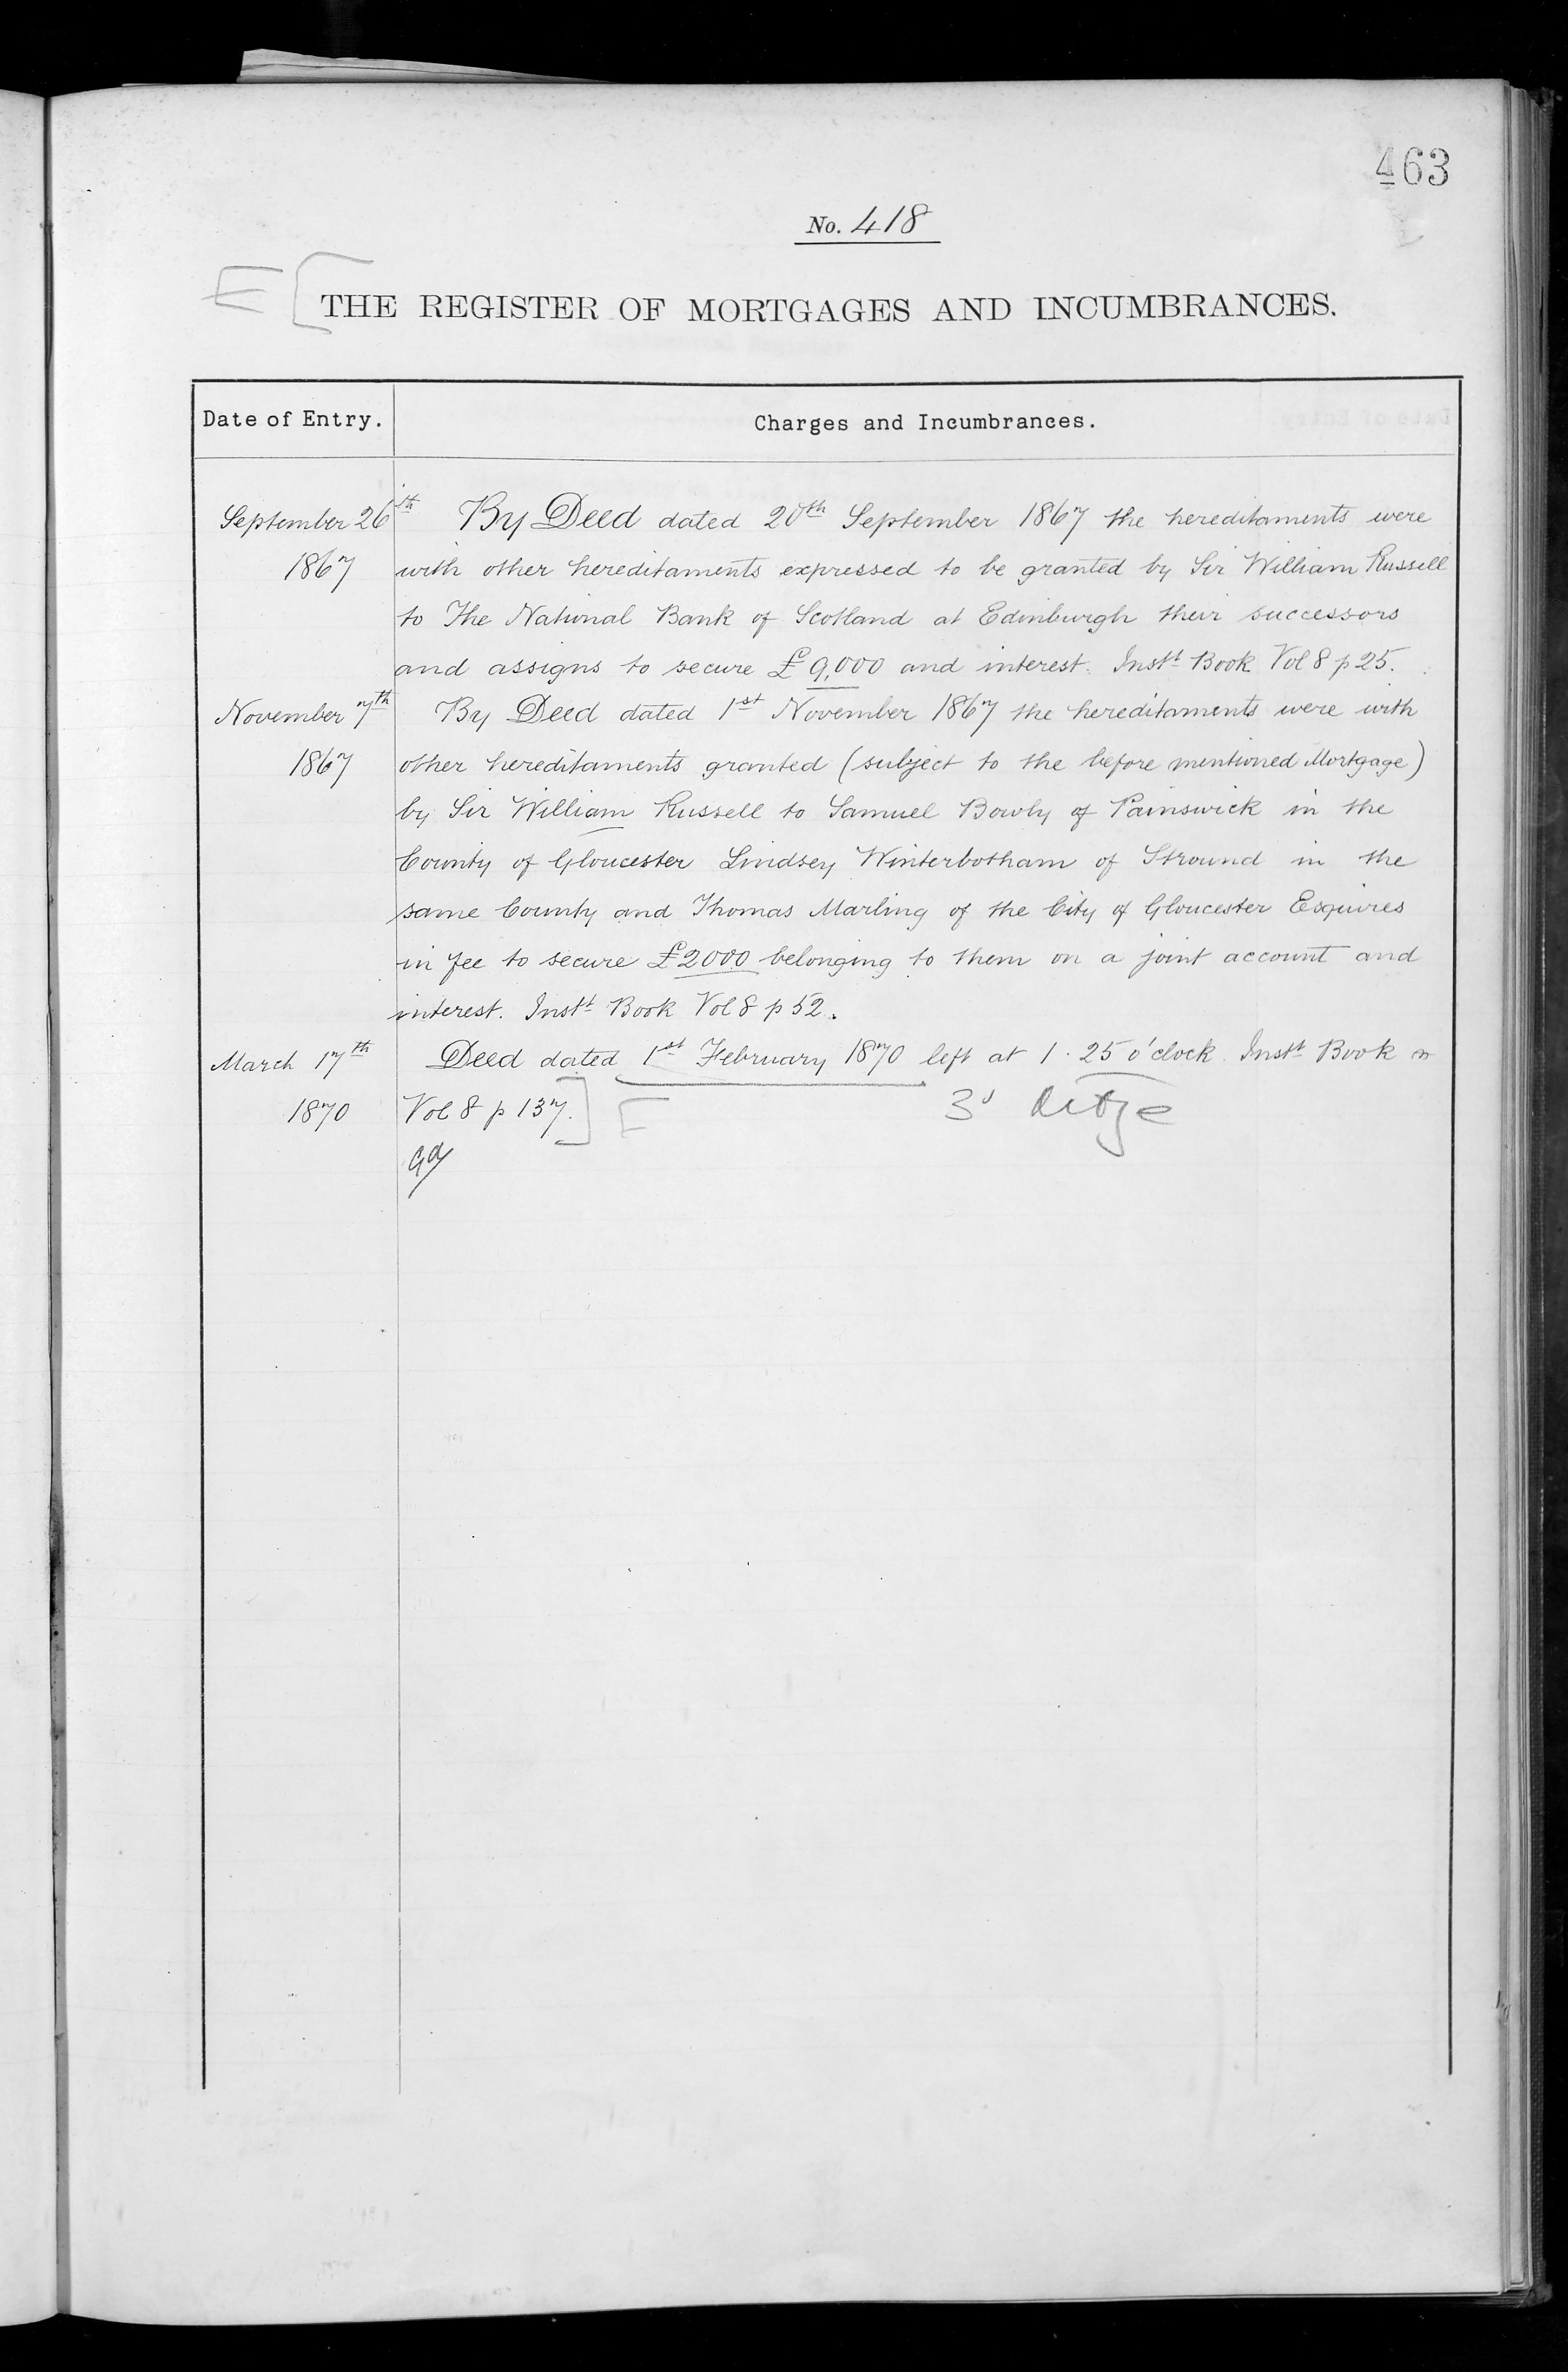 463
No. 418
E [
THE REGISTER OF MORTGAGES AND INCUMBRANCES.
Date of Entry.
Charges and Incumbrances.
September 26th By Deed dated 20th September 1867 the hereditaments were
1867 with other hereditaments expressed to be granted by Sir William Russell
to The National Bank of Scotland at Edinburgh their successors
and assigns to secure £9,000 and interest. Instt Book Vol 8 p 25.
November 7th By Deed dated 1st November 1867 the hereditaments were with
1867 other hereditaments granted (subject to the before mentioned Mortgage)
by Sir William Russell to Samuel Bowly of Painswick in the
County of Gloucester Lindsey Winterbotham of Stround in the
same County and Thomas Marling of the City of Gloucester Esquires
in fee to secure £2000 belonging to them on a joint account and
interest. Instt Book Vol 8 p 52.
March 17th Deed dated 1st February 1870 left at 1.25 o'clock. Instt Book
1870 Vol 8 p 137. ] E 3d